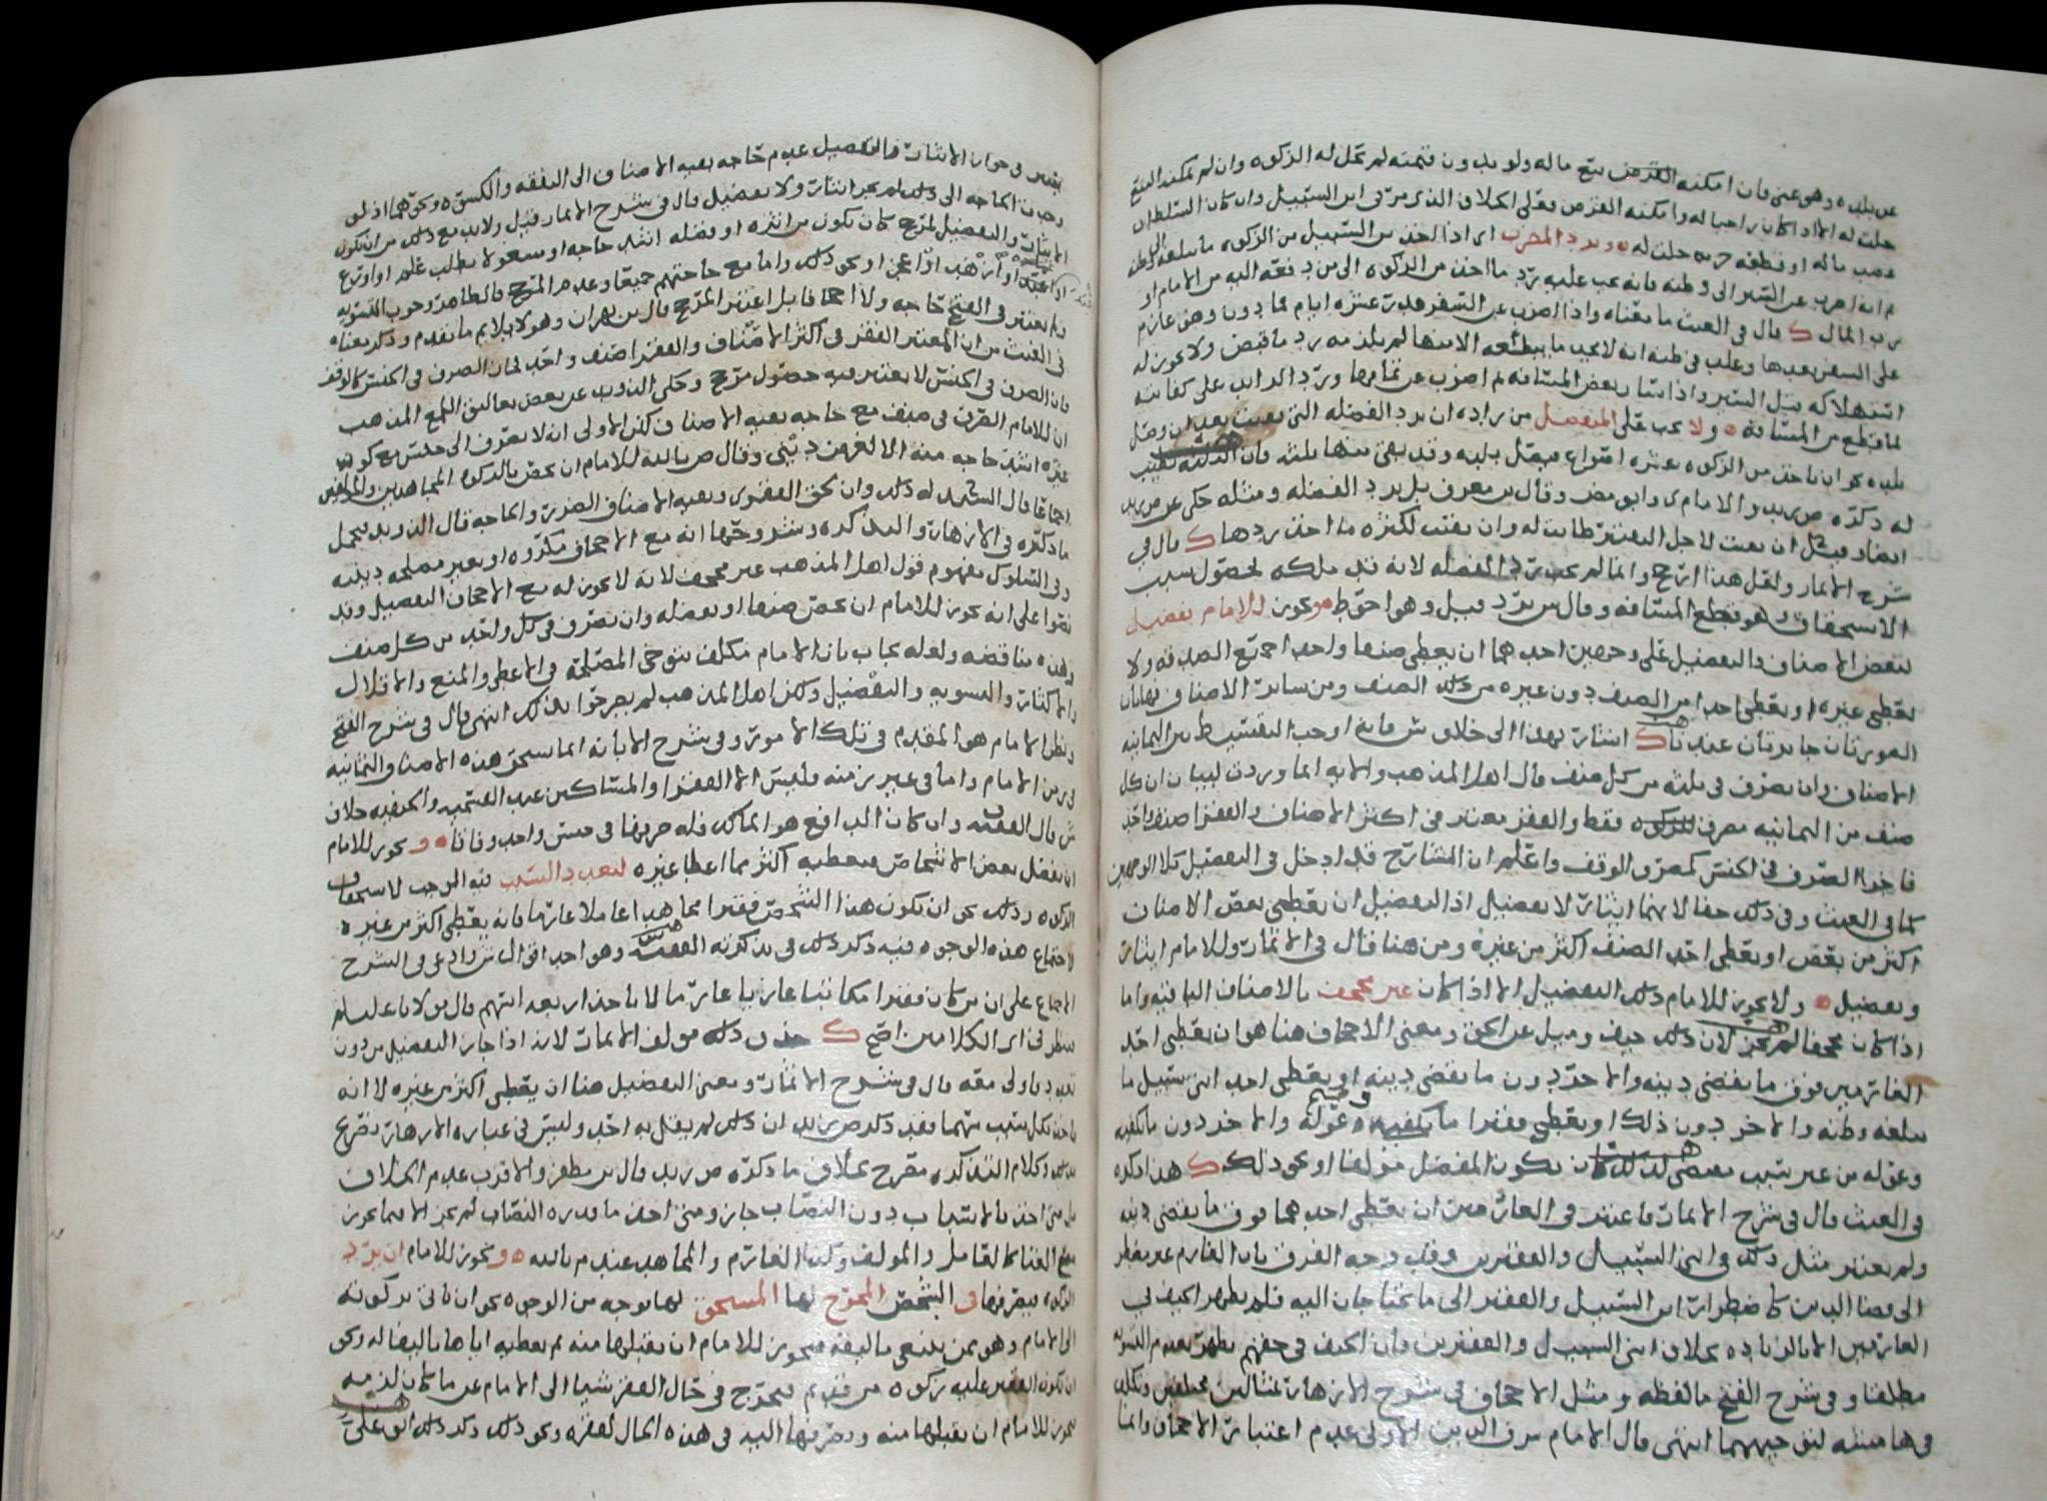 عن بلده وهو غني فان امكنه القرض ببيع ماله ولو بدون قيمته لم تحل له الزكوه وان لم يمكنه البيع
حلت له اما اذا كان راجيا له وامكنه القرض فعلى الخلاف الذي مر في ابن السبيل وان كان السلطان
غصب ماله او قطعه حلت له ويرد المضرب اي اذا اخذ ابن السبيل من الزكوه ما يبلغه الى وطنه
ثم انه اضرب عن السير الى وطنه فانه يجب عليه رد ما اخذ من الزكوه الى من دفعه اليه من الامام او
رب المال قال في الغيث ما معناه واذا اضرب عن السفر قدر عشره ايام فما دون وهو عازم
على السفر بعدها وغلب في ظنه انه لا يجد ما يبلغه الا منها لم يلزمه رد ما قبض ولا يجوز له
استهلاكه قبل السير واذا سار بعض المسافه ثم اضرب عن تمامها ورد الزايد على كفايته
لما قطع من المسافه ولا يجب على المتفضل من زاده ان يرد الفضله التي بقيت بعد ان وصل
بلده نحو ان ياخذ من الزكوه عشره انواع فيصل بلده وقد بقي منها ثلثه فان الثلثه تطيب
له ذكره ص زيد والامام ي وابو مضر وقال بن معرف بل يرد الفضله ومثله حكي عن ص زيد
ايضا وقيل ان بقيت لاجل التقتير طابت له وان بقيت لكثره ما اخذ ردها قال في
شرح الاثمار ولعل هذا ارجح وانما لم يجب رد الفضله لانه قد ملكه لحصول سبب
الاستحقاق وهو قطع المسافه وقال يرد قيل وهو احوط ويجوز للامام تفضيل
لبعض الاصناف والتفضيل على وجهين احدهما ان يعطي صنفا واحدا جميع الصدقه ولا
يعطي غيره او يعطي احدا من الصنف دون غيره من ذلك الصنف ومن سائر الاصناف فهاتان
الصورتان جايزتان عندنا اشار بهذا الى خلاف ش فانه اوجب التقسيط بين الثمانيه
الاصناف وان يصرف في ثلثه من كل صنف قال اهل المذهب والايه انما وردت لبيان ان كل
صنف من الثمانيه مصرف للزكوه فقط والفقر معتبر في اكثر الاصناف والفقرا صنف واحد
فاجزا الصرف في الجنس كمصرف الوقف واعلم ان الشارح قد ادخل في التفضيل كلا الوجهين
كما في الغيث وفي ذلك خفا لانهما ايثار لا تفضيل اذ التفضيل ان يعطي بعض الاصناف
اكثر من بعض او يعطي احد الصنف اكثر من غيره ومن هنا قال في الاثمار وللامام ايثار
وتفضيل ولا يجوز للامام ذلك التفضيل الا اذا كان غير مجحف بالاصناف الباقيه واما
اذا كان مجحفا لم يجز لان ذلك حيف وميل عن الحق ومعنى الاجحاف هنا هو ان يعطي احد
الغارمين فوق ما يقضي دينه والاخر دون ما يقضي دينه او يعطي احد ابني سبيل ما
يبلغه وطنه والاخر دون ذلك او يعطي فقيرا ما يكفيه وعوله والاخر دون ما يكفيه
وعوله من غير سبب يقتضي ذلك كأن يكون المفضل مولفا او نحو ذلك هذا ذكره
في الغيث قال في شرح الاثمار فاعتبر في الغارمين ان يعطي احدهما فوق ما يقضي دينه
ولم يعتبر مثل ذلك في ابني السبيل والفقيرين وقد وجه الفرق بان الغارم غير مضطر
الى قضا الدين كاضطرار ابن السبيل والفقير الى ما يحتاجان اليه فلم يظهر الحيف في
الغارمين الا بالزياده بخلاف ابني السبيل والفقيرين فان الحيف في حقهم يظهر بعدم التسويه
مطلقا وفي شرح الفتح ما لفظه ومثل الاجحاف في شرح الازهار بمثالين مختلفين وتكلف
في هامشه لتوجيههما انتهى قال الامام شرف الدين الاولى عدم اعتبار الاجحاف وانما
يعتبر في جواز الايثار والتفضيل عدم حاجه بقيه الاصناف الى النفقه والكسوه ونحوهما اذ لو
وجدت الحاجه الى ذلك لم يجز ايثار ولا تفضيل قال في شرح الاثمار وقيل ولا بد مع ذلك من ان يكون
الايثار والتفضيل لمرجح كان يكون من اثره او فضله اشد حاجه او مشغولا بطلب علم او اورع
او اعبد او اضعف او اعجز او نحو ذلك واما مع حاجتهم جميعا وعدم المرجح فالظاهر وجوب التسويه
ولم يعتبر في الفتح حاجه ولا اجحافا بل اعتبر المرجح قال بن بهران وهو لا يلايم ما تقدم وذكر معناه
في الغيث من ان المعتبر الفقر في اكثر الاصناف والفقرا صنف واحد لان الصرف في الجنس كالوقف
فان الصرف في الجنس لا يعتبر فيه حصول مرجح وحكي الدوري عن بعض تعاليق اللمع المذهب
ان للامام الصرف في صنف مع حاجه بقيه الاصناف لكن الاولى انه لا يصرف الى جنس مع كون
غيره اشد حاجه منه الا لغرض ديني وقال ص بالله للامام ان يخص بالزكوه المجاهدين والمولفين
اجماعا قال السيد له ذلك وان لحق الفقرا وبقيه الاصناف الضرر والحاجه قال الدوري يحمل
ما ذكره في الازهار والتذكره وشروحهما انه مع الاجحاف مكروه او بغير مصلحه دينيه
وفي السلوك مفهوم قول اهل المذهب غير مجحف لانه لا يجوز له مع الاجحاف التفضيل وقد
نصوا على انه يجوز للامام ان يخص صنفا او بعضه وان يصرف في كل واحد من كل صنف
وهذه مناقضه ولعله يجاب بان الامام مكلف بتوخي المصلحه في الاعطا والمنع والاقلال
والاكثار والتسويه والتفضيل ولكن اهل المذهب لم يصرحوا بذلك انتهى قال في شرح الفتح
ونظر الامام هو المقدم في تلك الامور وفي شرح الابانه انما يستحق هذه الاصناف الثمانيه
في زمن الامام واما في غير زمنه فليس الا الفقرا والمساكين عند القسميه والحنفيه خلاف
ش قال الفقيه ف وان كان الدافع هو المالك فله صرفها في جنس واحد وفاقا ويجوز للامام
ان يفضل بعض الاشخاص فيعطيه اكثر مما اعطا غيره لتعدد السبب فيه الموجب لاستحقاق
الزكوه وذلك نحو ان يكون هذا الشخص فقيرا مجاهدا عاملا غارما فانه يعطي اكثر من غيره
لاجتماع هذه الوجوه فيه ذكر ذلك في تذكره الفقيه س وهو احد اقوال ش وادعى في الشرح
الاجماع على ان من كان فقيرا مكاتبا غازيا غارما لا ياخذ اربعه اسهم قال مولانا عليلم
ينظر في اي الكلامين اصح حذف ذلك مولف الاثمار لانه اذا جاز التفضيل من دون
تعدد فاولى معه قال في شرح الاثمار ومعنى التفضيل هنا ان يعطي اكثر من غيره لا انه
ياخذ بكل سبب سهما فقد ذكر ص زيد ان ذلك لم يقل به احد وليس في عباره الازهار تصريح
بذلك وكلام التذكره مصرح بخلاف ما ذكره ص زيد قال بن مظفر والاقرب عدم الخلاف
بل متى اخذ بالاسباب دون النصاب جاز ومتى اخذ ما قدره النصاب لم يجز الا فيما يجوز
مع الغنا كالعامل والمولف وكذا الغارم والمجاهد عند م بالله ويجوز للامام ان يرد
الزكوه فيصرفها في الشخص المخرج لها المستحق لها بوجه من الوجوه نحو ان ياتي بزكوته
الى الامام وهو ممن ينبغي تاليفه فيجوز للامام ان يقبلها منه ثم يعطيه اياها تاليفا له ونحو
ان تكون الفقير عليه زكوه من قديم فيخرج في حال الفقر شيا الى الامام عن ما كان لزمه
فيجوز للامام ان يقبلها منه ويصرفها اليه في هذه الحال لفقره ونحو ذلك وكذلك